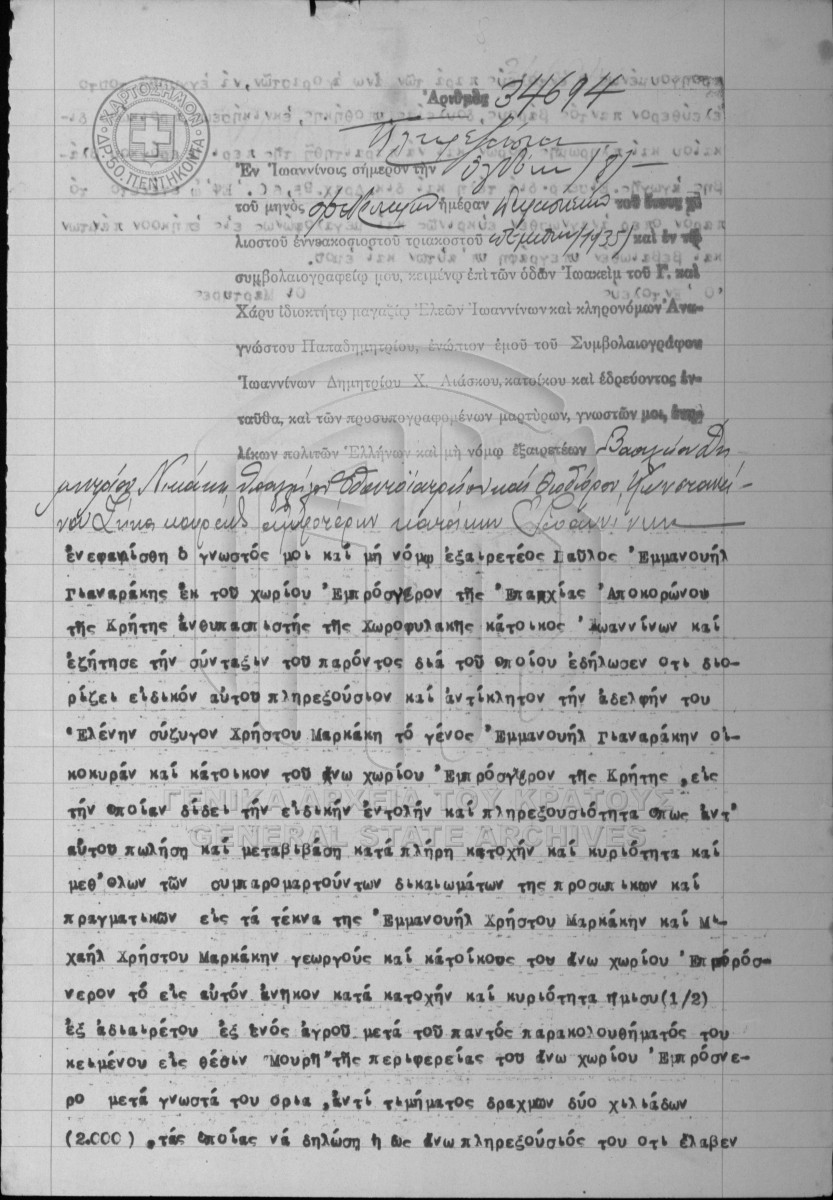 ΧΑΡΤΟΣΗΜΟΝ
ΔΡ. 50. ΠΕΝΤΗΚΟΝΤΑ
Ἀριθμὸς 34694
Πληρεξούσιον
Ἐν Ἰωαννίνοις σήμερον τὴν ὀγδόην (8)
τοῦ μηνὸς ἡμέραν τοῦ ἔτους χι
λιοστοῦ ἐννεακοσιοστοῦ τριακοστοῦ πέμπτου (1935) καὶ ἐν τῷ
συμβολαιογραφείῳ μου, κειμένῳ ἐπὶ τῶν ὁδῶν Ἰωακεὶμ τοῦ Γ. καὶ
Χάρυ ἰδιοκτήτῳ μαγαζίῳ Ἐλεῶν Ἰωαννίνων καὶ κληρονόμων Ἀνα-
γνώστου Παπαδημητρίου, ἐνώπιον ἐμοῦ τοῦ Συμβολαιογράφου
Ἰωαννίνων Δημητρίου Χ. Λιάσκου, κατοίκου καὶ ἑδρεύοντος ἐν-
ταῦθα, καὶ τῶν προσυπογραφομένων μαρτύρων, γνωστῶν μοι, ἐνη-
λίκων πολιτῶν Ἑλλήνων καὶ μὴ νόμῳ ἐξαιρετέων Βασιλείου Δη
μητρίου καὶ Θεοδώρου Κωνσταντί-
νου κουρέως ἀμφοτέρων κατοίκων Ἰωαννίνων
ἐνεφανίσθη ὁ γνωστός μοι καί μή νόμῳ ἐξαιρετέος Παῦλος Ἐμμανουήλ
Γιαναράκης ἐκ τοῦ χωρίου Ἐμπρόσνερον τῆς Ἐπαρχίας Ἀποκορώνου
τῆς Κρήτης ἀνθυπασπιστής τῆς Χωροφυλακῆς κάτοικος Ἰωαννίνων καί
ἐζήτησε τήν σύνταξιν τοῦ παρόντος διά τοῦ ὁποίου ἐδήλωσεν οτι διο-
ρίζει εἰδικόν αὐτοῦ πληρεξούσιον καί ἀντίκλητον τήν ἀδελφήν του
Ἑλένην σύζυγον Χρήστου Μαρκάκη τό γένος Ἐμμανουήλ Γιαναράκην οἰ-
κοκυράν καί κάτοικον τοῦ ἄνω χωρίου Ἐμπρόσνερον τῆς Κρήτης ,εἰς
τήν ὁποίαν δίδει τήν εἰδικήν ἐντολήν καί πληρεξουσιότητα ὅπως ἀντ'
αὐτοῦ πωλήσῃ καί μεταβιβάσῃ κατά πλήρη κατοχήν καί κυριότητα καί
μεθ'ὅλων τῶν συμπαρομαρτούντων δικαιωμάτων της προσωπικῶν καί
πραγματικῶν εἰς τά τέκνα της Ἐμμανουήλ Χρήστου Μαρκάκην καί Μι-
χαήλ Χρήστου Μαρκάκην γεωργούς καί κατοίκους τοῦ ἄνω χωρίου Ἐμπρόσ-
νερον τό εἰς αὐτόν ἀνῆκον κατά κατοχήν καί κυριότητα ἥμισυ(1/2)
ἐξ ἀδιαιρέτου ἐξ ἑνός ἀγροῦ μετά τοῦ παντός παρακολουθήματός του
κειμένου εἰς θέσιν "Μουρῆ"τῆς περιφερείας τοῦ ἄνω χωρίου Ἐμπρόσνε-
ρο μετά γνωστά του ὅρια ,ἀντί τιμήματος δραχμῶν δύο χιλιάδων
(2.000) ,τάς ὁποίας νά δηλώσῃ ἡ ὡς ἄνω πληρεξούσιός του οτι ἔλαβεν
ΓΕΝΙΚΑ ΑΡΧΕΙΑ ΤΟΥ ΚΡΑΤΟΥΣ
GENERAL STATE ARCHIVES